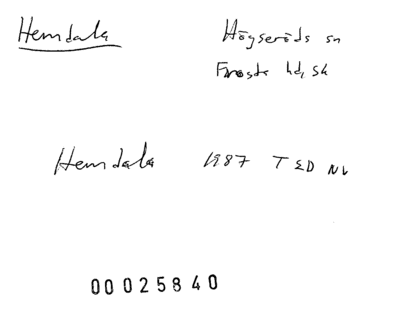 Hemdala
Högseröds sn
Frosta hd, Sk
Hemdala 1987 TED NL
00025840